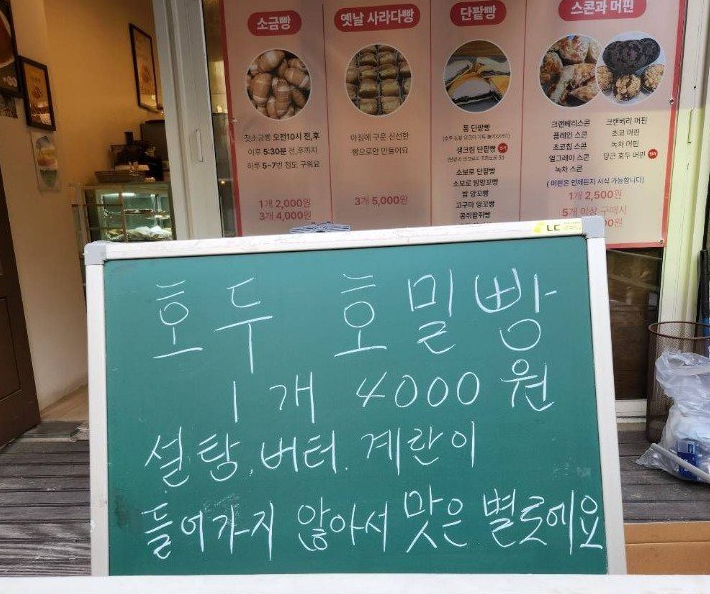 소금빵
옛날 사라다빵
단팥빵
스콘과 머핀
첫소금빵 오전10시 전,후
이후 5:30분 전,후까지
하루 5~7번 정도 구워요
1개 2,000원
3개 4,000원
아침에 구운 신선한
빵으로만 만들어요
3개 5,000원
통 단팥빵
생크림 단팥빵
소보로 단팥빵
소보로 밤앙꼬빵
밤 앙꼬빵
고구마 앙꼬빵
크랜베리스콘
플레인 스콘
초코칩 스콘
얼그레이 스콘
녹차 스콘
크랜베리 머핀
초코 머핀
녹차 머핀
당근 호두 머핀
1개 2,500원
5개 이상 구매시
LC
호두 호밀빵
1개 4000원
설탕, 버터, 계란이
들어가지 않아서 맛은 별로에요